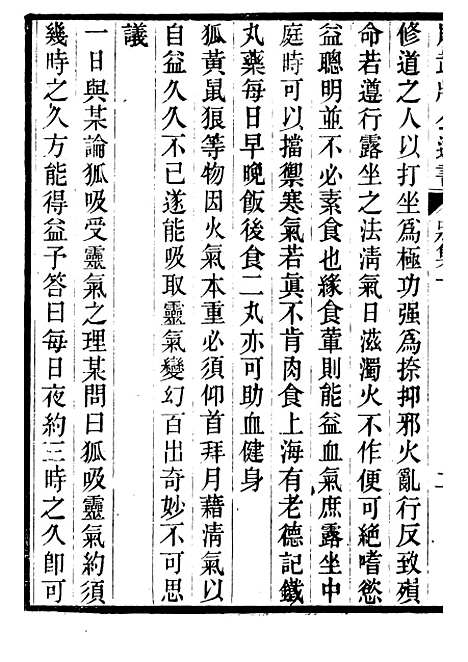 修道之人以打坐爲極功强爲捺抑邪火亂行反致殞
命若遵行露坐之法淸氣日滋濁火不作便可絶嗜慾
益聰明並不必素食也緣食葷則能益血氣庶露坐中
庭時可以擋禦寒氣若眞不肯肉食上海有老德記鐵
丸藥每日早晚飯後食二丸亦可助血健身
狐黃鼠狼等物因火氣本重必須仰首拜月藉淸氣以
自益久久不已遂能吸取靈氣變幻百出奇妙不可思
議
一日與某論狐吸受靈氣之理某問曰狐吸靈氣約須
幾時之久方能得益予答曰每日夜約三時之久卽可